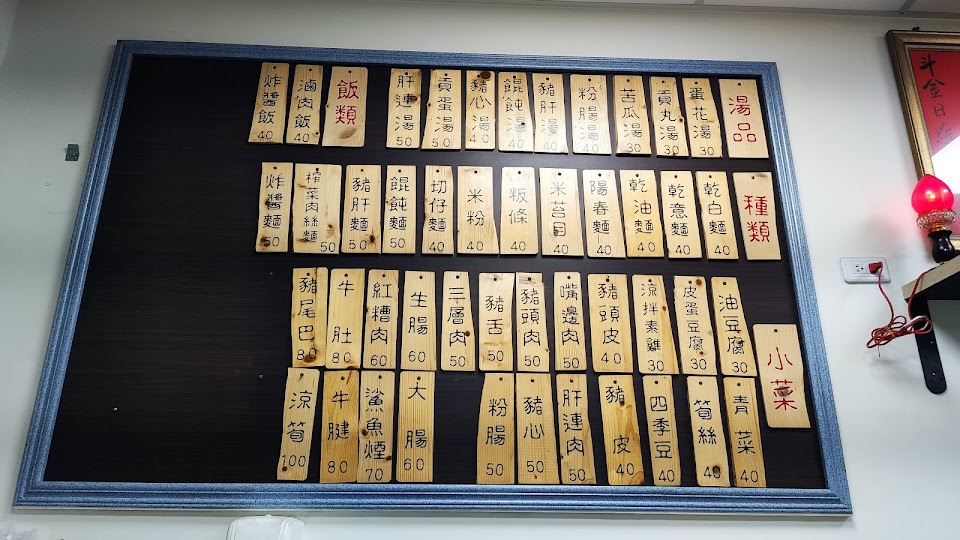 湯品
蛋花湯 30
貢丸湯 30
苦瓜湯 30
粉腸湯 40
豬肝湯 40
餛飩湯 40
豬心湯 40
貢蛋湯 50
肝連湯 50
飯類
滷肉飯 40
炸醬飯 40
種類
乾白麵 40
乾意麵 40
乾油麵 40
陽春麵 40
米苔目 40
粄條 40
米粉 40
切仔麵 40
餛飩麵 50
豬肝麵 50
榨菜肉絲麵 50
炸醬麵 50
小菜
油豆腐 30
皮蛋豆腐 30
涼拌素雞 30
豬頭皮 40
嘴邊肉 50
豬頭肉 50
豬舌 50
三層肉 50
生腸 60
紅糟肉 60
牛肚 80
豬尾巴 80
青菜 40
筍絲 40
四季豆 40
豬皮 40
肝連肉 50
豬心 50
粉腸 50
大腸 60
鯊魚煙 70
牛腱 80
涼筍 100
斗金日